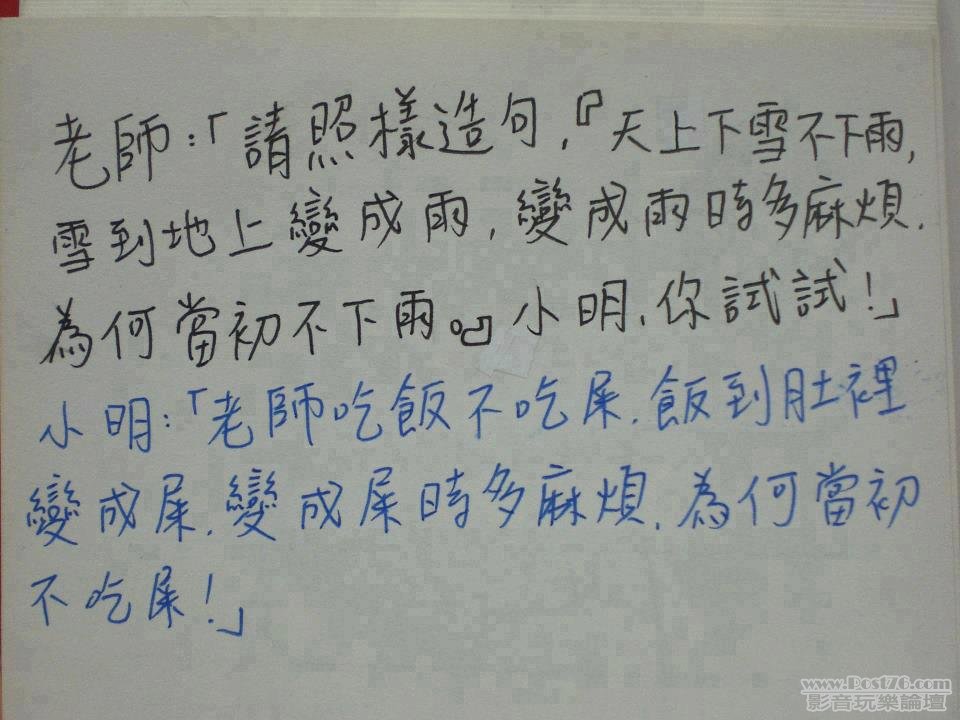 老師:「請照樣造句,『天上下雪不下雨,
雪到地上變成雨,變成雨時多麻煩.
為何當初不下雨。』小明,你試試!」
小明:「老師吃飯不吃屎.飯到肚裡
變成屎.變成屎時多麻煩.為何當初
不吃屎!」
www.Post76.com
影音玩樂論壇